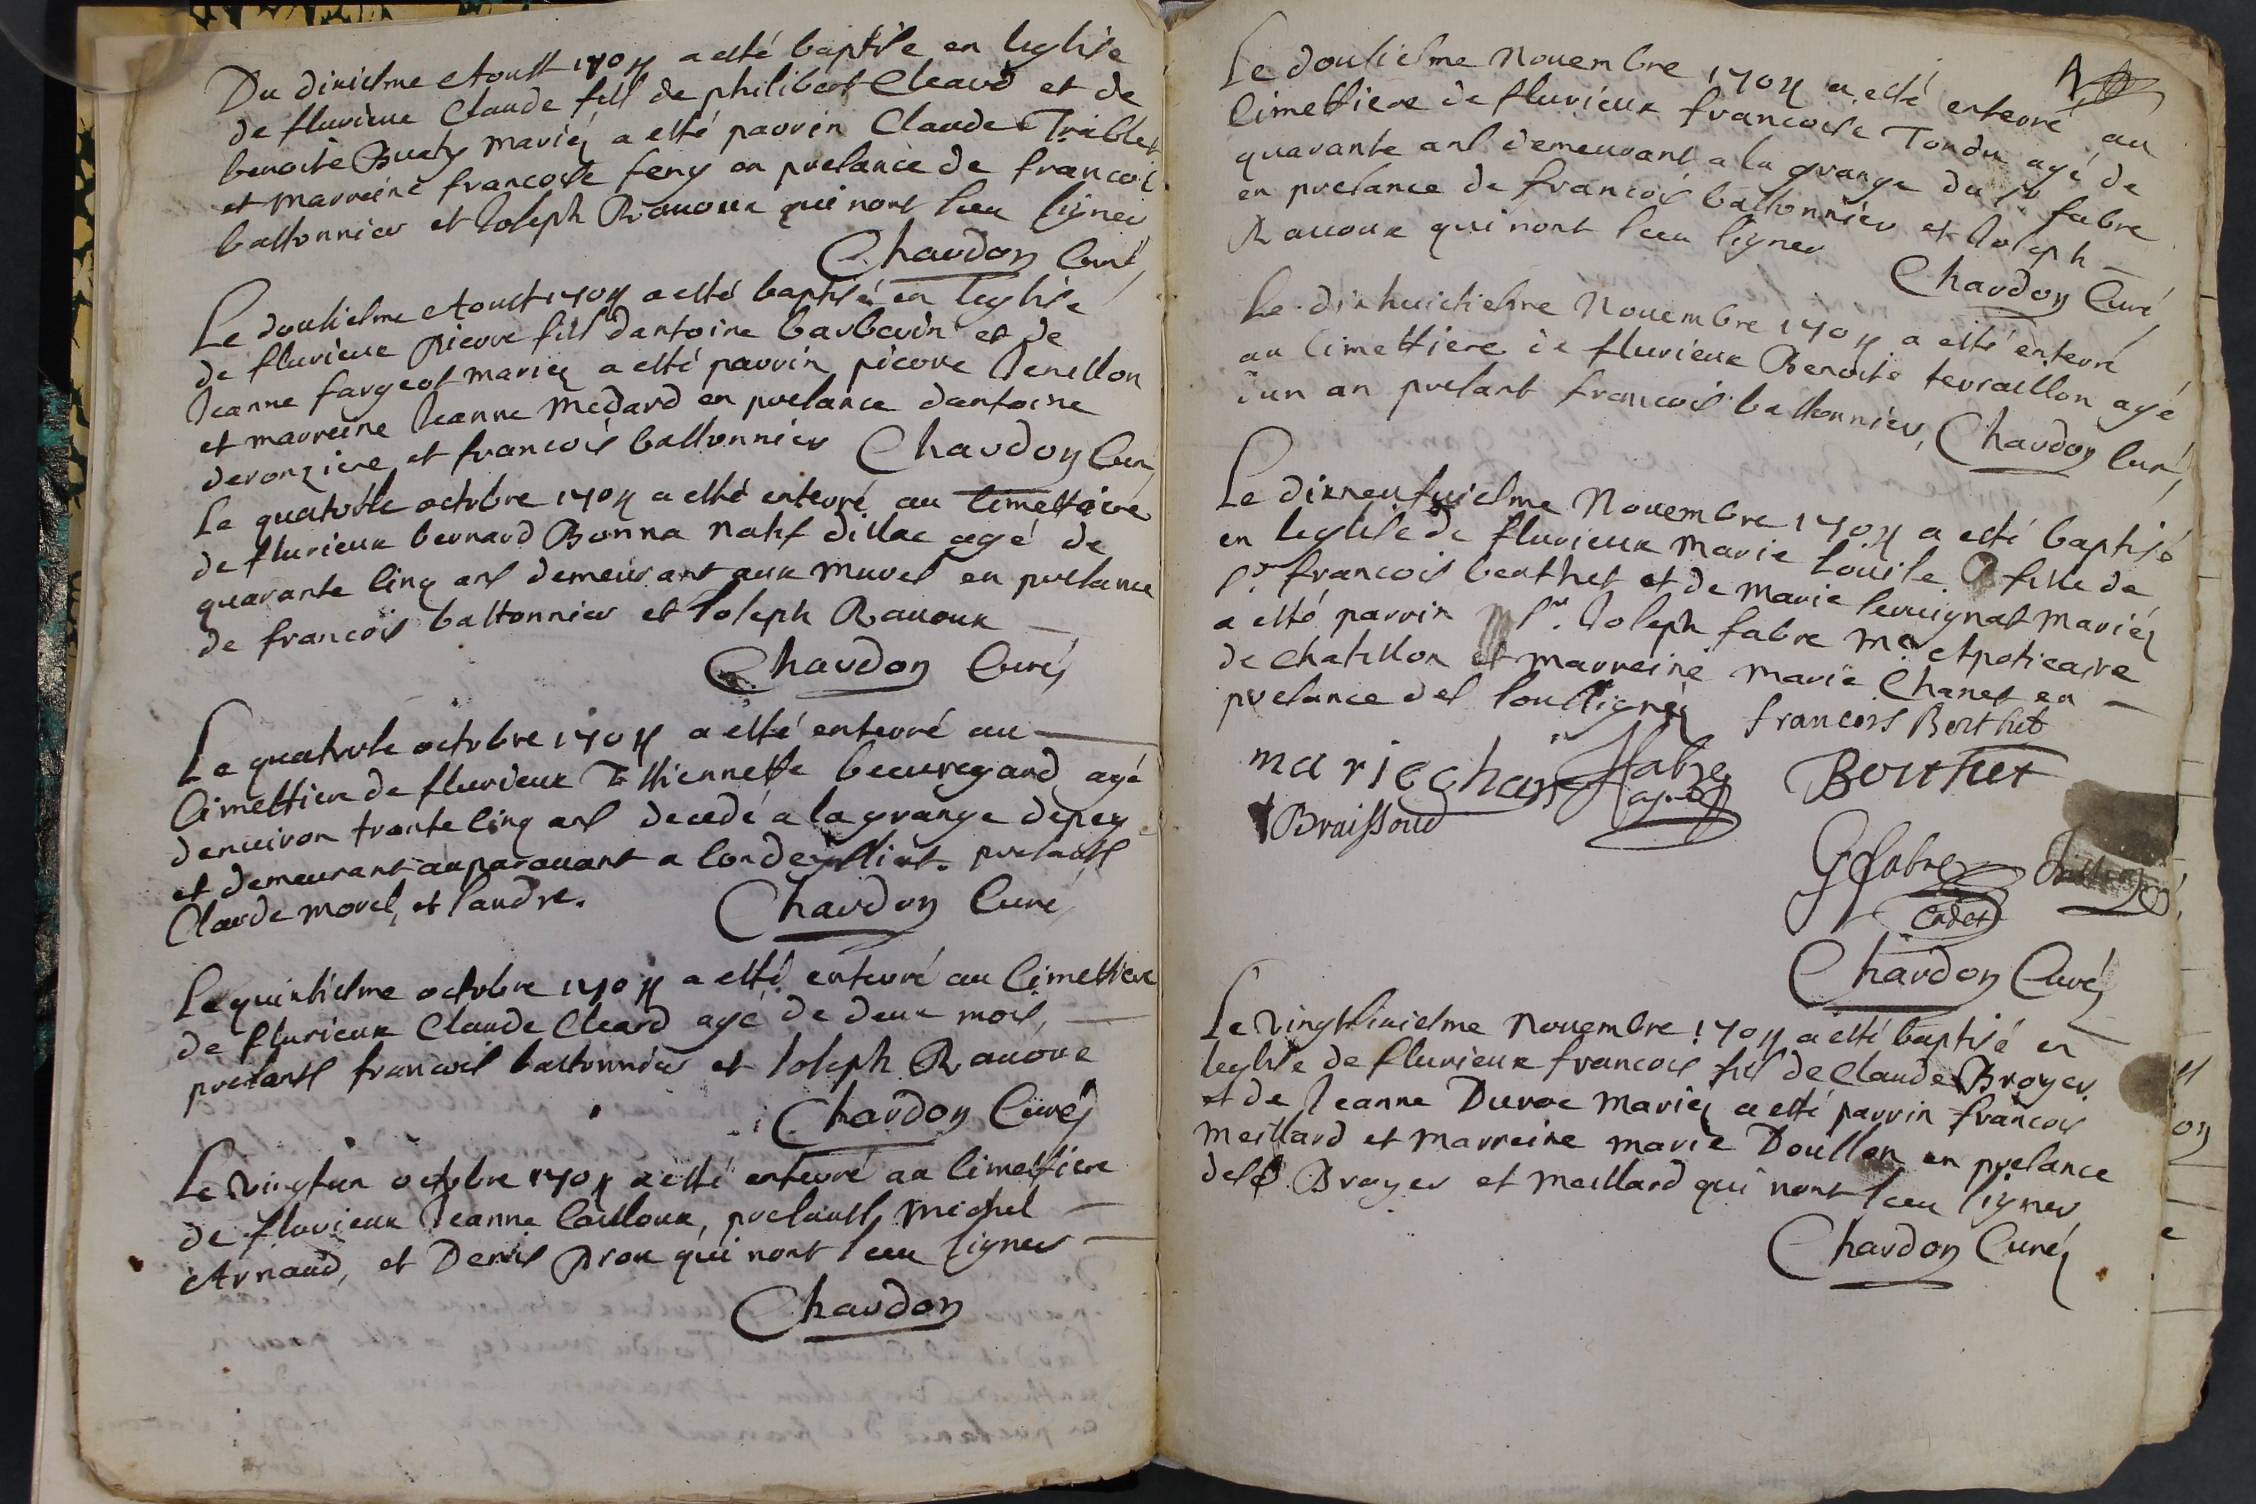 Du dixiesme Aoust 1704 a esté baptise en leglise
de flurieux Claude fils de philibert Cleard et de
benoite Buaty mariéz a esté parrin Claude Triblet
et marreine francoise fery en presance de francois
bastonnier et Joseph Rauoux qui nont sceu signer
Chardon Curé
Le dousiesme Aoust 1704 a esté baptisé en leglise
de flurieux pierre fils dantoine barberin et de
Jeanne fargeot mariez a esté parrin pierre Jenillon
et marreine Jeanne Medard en presance dantoine
deronziere et francois bastonnier Chardon Curé
Le quatorse octobre 1704 a esté enterré au Cimettiere
de flurieux bernard Bonna natif dillac agé de
quarante cinq ans demeurant aux mures en presance
de francois bastonnier et Joseph Rauoux
Chardon Curé
Le quatorse octobre 1704 a esté enterré au
Cimettiere de flurieux Thiennette beauregard agé
denuiron trante cinq ans decedé a la grange
et demeurant auparauant a presants
Claude morel, et landre.
Chardon Curé
Le quinsiesme octobre 1704 a esté enterré au Cimettiere
de flurieux Claude Cleard agé de deux mois,
presants francois bastonnier et Joseph Rauoux
Chardon Curé
Le vingtun octobre 1704 a esté enterré au Cimettiere
de flurieux Jeanne Cailloux, presants Michel
Arnaud, et Denis Proux qui nont sceu signer
Chardon
Le dousiesme Nouembre 1704 a esté enterré au
Cimettiere de flurieux francoise Tondu agé de
quarante ans demeurant a la grange du Sr fabre
en presance de francois bastonnier et Joseph
Rauoux qui nont sceu signer
Chardon Curé
Le dixhuictiesme Nouembre 1704 a esté enterré
au Cimettiere de flurieux Benoite terraillon agé
dun an presant francois bastonnier, Chardon Curé
Le dixneufuiesme Nouembre 1704 a esté baptisé
en leglise de flurieux Marie Louise fille de
Sr. francois berthet et de Marie mariéz
a esté parrin Sr. Joseph fabre Me Apoticaire
de Chatillon et marreine marie Chanet en
presance des soussignéz francois Berthet
marie chanet Jfabre Berthet
Braissoud
Gfabre
Cadet
Chardon Curé
Le vingtsixiesme Nouembre 1704 a esté baptisé en
leglise de flurieux francois fils de Claude Broyer
et de Jeanne Duroc mariéz a esté parrin francois
Meillard et marreine marie Doullon en presance
des Broyer et Meillard qui nont sceu signer
Chardon Curé